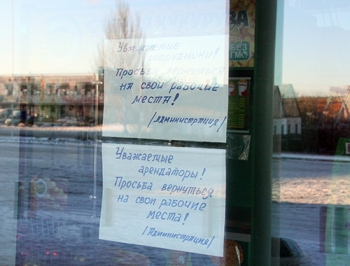 Уважаемые
Просьба вернуться
на свои рабочие
места!
/Администрация/
Уважаемые
арендаторы!
Просьба вернуться
на свои рабочие
места!
/Администрация/